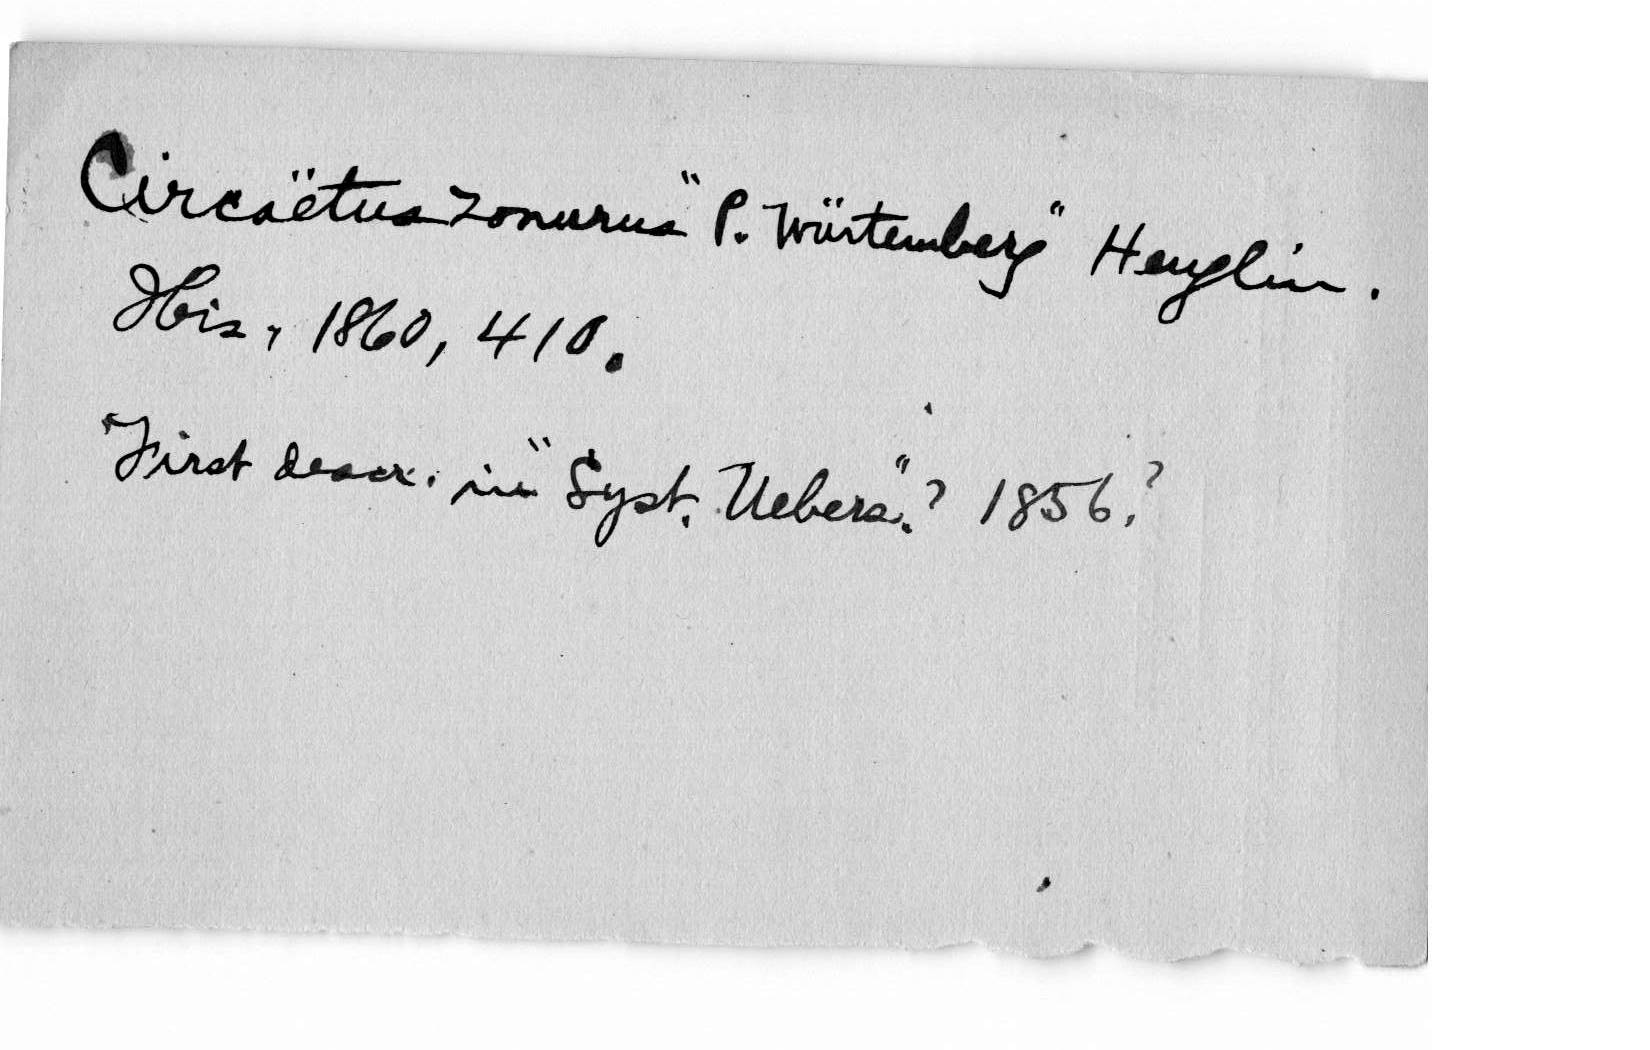 Circaëtus zonurus "P. Würtemberg" Heuglin.
Ibis, 1860, 410.
First descr. in "Syst. Uebers."? 1856.?